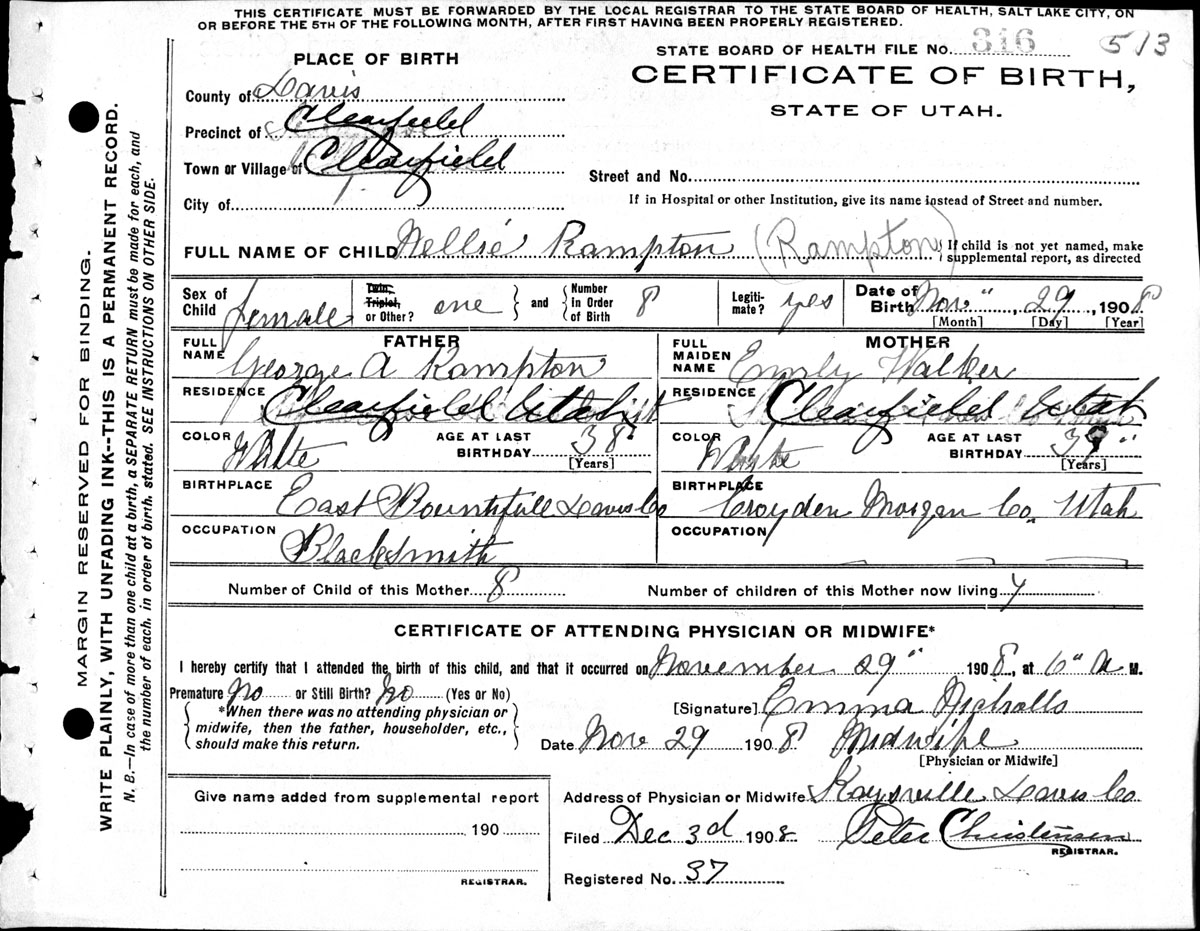 THIS CERTIFICATE MUST BE FORWARDED BY THE LOCAL REGISTRAR TO THE STATE BOARD OF HEALTH, SALT LAKE CITY, ON
OR BEFORE THE 5TH OF THE FOLLOWING MONTH, AFTER FIRST HAVING BEEN PROPERLY REGISTERED.
MARGIN RESERVED FOR BINDING.
WRITE PLAINLY, WITH UNFADING INK--THIS IS A PERMANENT RECORD.
N. B.—In case of more than one child at a birth, a SEPARATE RETURN must be made for each, and
the number of each. in order of birth. stated. SEE INSTRUCTIONS ON OTHER SIDE.
PLACE OF BIRTH
County of Davis
Precinct of Clearfield
Town or Village of Clearfield
City of
STATE BOARD OF HEALTH FILE NO. 316 513
CERTIFICATE OF BIRTH,
STATE OF UTAH.
Street and No.
If in Hospital or other Institution, give its name instead of Street and number.
FULL NAME OF CHILD Nellie Rampton (Rampton)
If child is not yet named, make
supplemental report, as directed
Sex of Child female
Twin, Triplet, or Other? one and Number in Order of Birth 8
Legiti-mate? yes
Date of Birth Nov", 29, 1908
[Month] [Day] [Year]
FATHER
FULL NAME George A Rampton
RESIDENCE Clearfield Utah
COLOR White AGE AT LAST BIRTHDAY 38
[Years]
BIRTHPLACE East Bountifull Davis Co
OCCUPATION Blacksmith
MOTHER
FULL MAIDEN NAME Emily Walker
RESIDENCE Clearfield Utah
COLOR Whyte AGE AT LAST BIRTHDAY 39"
[Years]
BIRTHPLACE Croyden Morgan Co, Utah
OCCUPATION
Number of Child of this Mother 8 Number of children of this Mother now living 7
CERTIFICATE OF ATTENDING PHYSICIAN OR MIDWIFE*
I hereby certify that I attended the birth of this child, and that it occurred on November 29" 1908, at 6" A M.
Premature No or Still Birth? No (Yes or No)
*When there was no attending physician or
midwife, then the father, householder, etc.,
should make this return.
[Signature] Emma Nicholls
Date Nov 29 1908 Midwife
[Physician or Midwife]
Give name added from supplemental report
190
REGISTRAR.
Address of Physician or Midwife Kaysville Davis Co
Filed Dec 3d 1908 Peter Christensen
REGISTRAR.
Registered No. 37